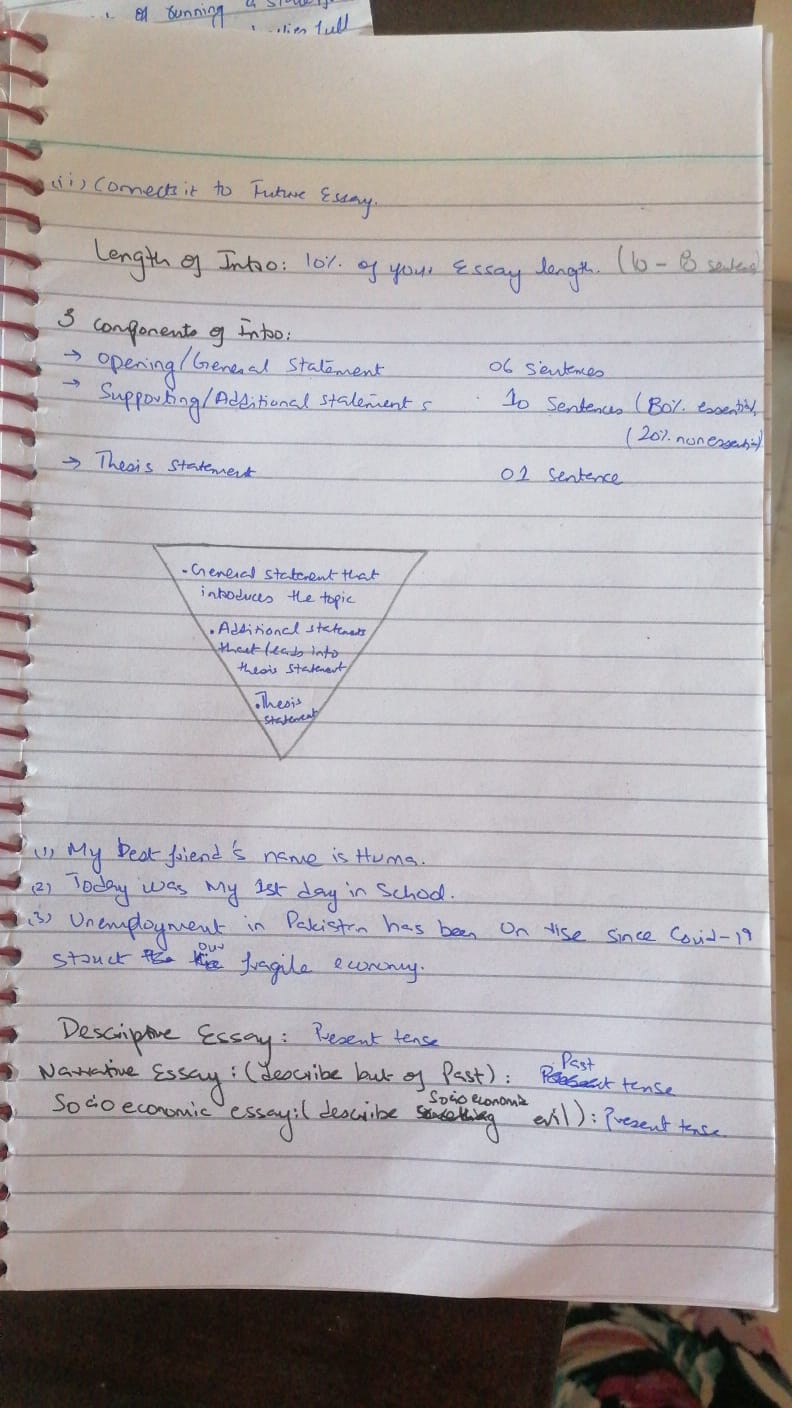 of running a
full
(ii) Connects it to Future Essay.
Length of Intro: 10% of your Essay length. (6 - 8 sentence)
3 components of Intro:
→ Opening/General Statement 06 Sentences
→ Supporting/Additional statements 10 Sentences (80% essential,
(20% nonessential)
→ Thesis statement 01 sentence
• General statement that
introduces the topic
• Additional statements
that leads into
thesis statement
• Thesis
statement
(1) My best friend's name is Huma.
(2) Today was My 1st day in School.
(3) Unemployment in Pakistan has been on rise since Covid-19
struck our fragile economy.
Descriptive Essay: Present tense
Narrative Essay: (describe but of Past): Past tense
Socio economic essay: (describe Socio economic evil): Present tense